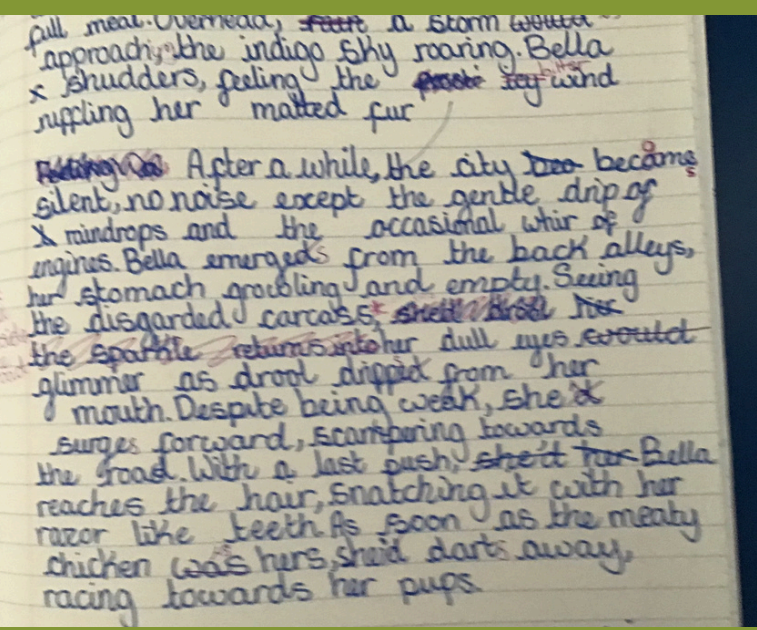 full meal. Overhead, a storm would
approach, the indigo sky roaring. Bella
x shudders, feeling the icy bitter wind
ruffling her matted fur
After a while, the city becomes
silent, no noise except the gentle drip of
x raindrops and the occasional whir of
engines. Bella emerges from the back alleys,
her stomach growling and empty. Seeing
the disgarded carcass, her
the sparkle returns into her dull eyes would
glimmer as drool dripped from her
mouth. Despite being weak, she
surges forward, scampering towards
the road. With a last push, she'd her Bella
reaches the hair, snatching it with her
razor like teeth. As soon as the meaty
chicken was hers, she'd darts away,
racing towards her pups.